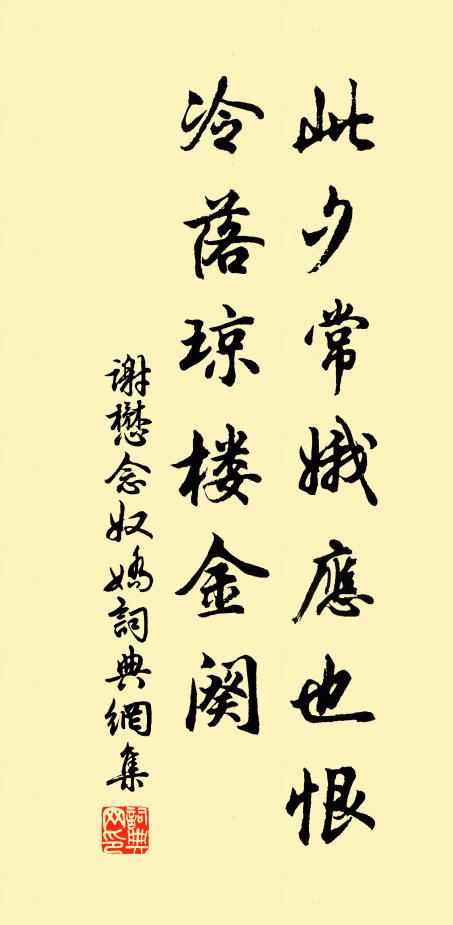 此夕常娥應也恨
冷落琼楼金闕
谢懋念奴娇詞典網集
詞典
网印